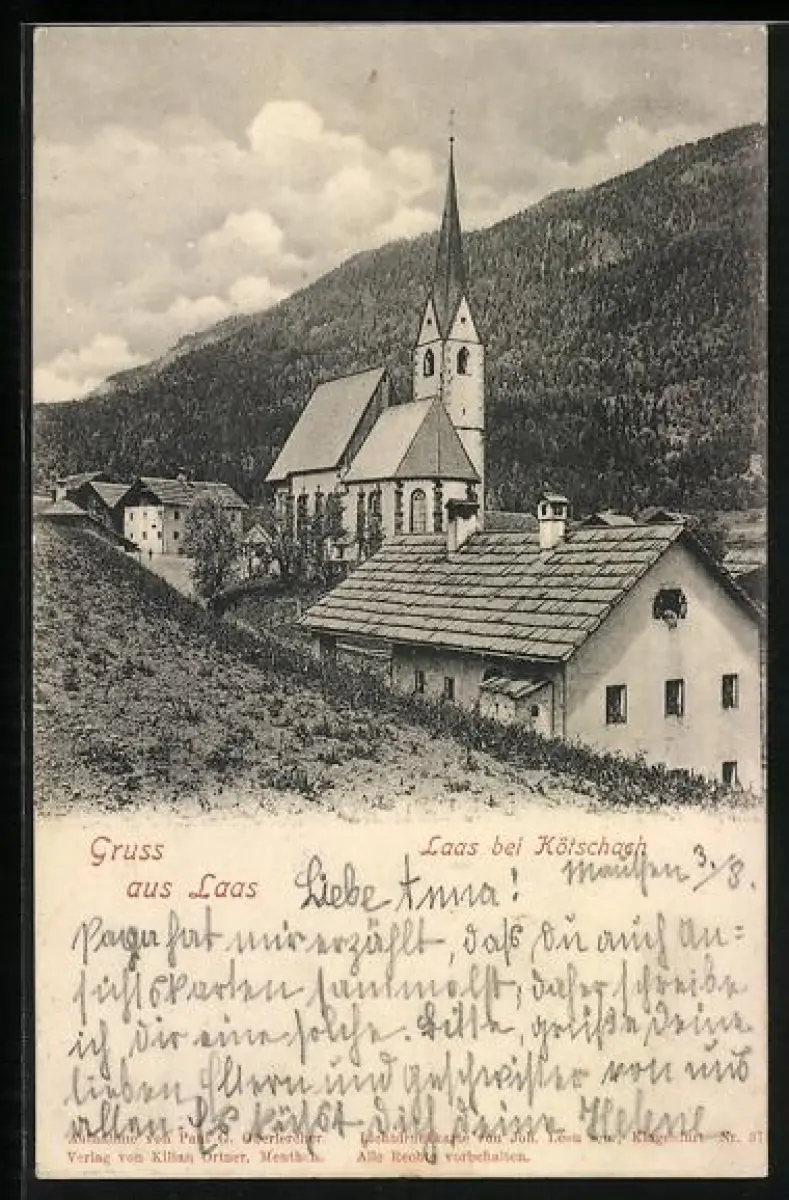 Gruss
aus Laas
Laas bei Kötschach
Mauthen 3./8.
Liebe Anna!
Papa hat mir erzählt, daß Du auch An=
sichtskarten sammelst; daher schreibe
ich Dir eine solche. Bitte, grüße Deine
lieben Eltern und Geschwister von uns
allen. Es küsst Dich Deine Helene
Aufnahme von Paul G. Oberlercher. Lichtdruckkarte von Joh. Leon sen., Klagenfurt Nr. 37
Verlag von Kilian Ortner, Mauthen. Alle Rechte vorbehalten.